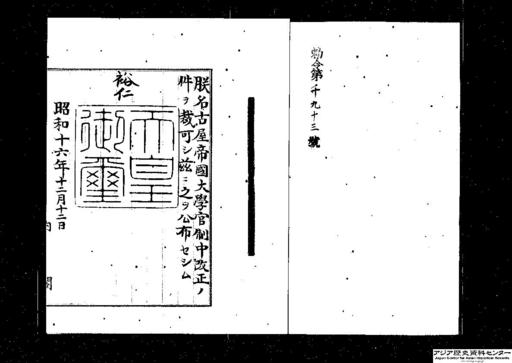 勅令第千九十三號
朕名古屋帝國大學官制中改正ノ
件ヲ裁可シ茲ニ之ヲ公布セシム
裕仁
天皇
御璽
昭和十六年十二月十二日
内閣
アジア歴史資料センター
Japan Center for Asian Historical Records